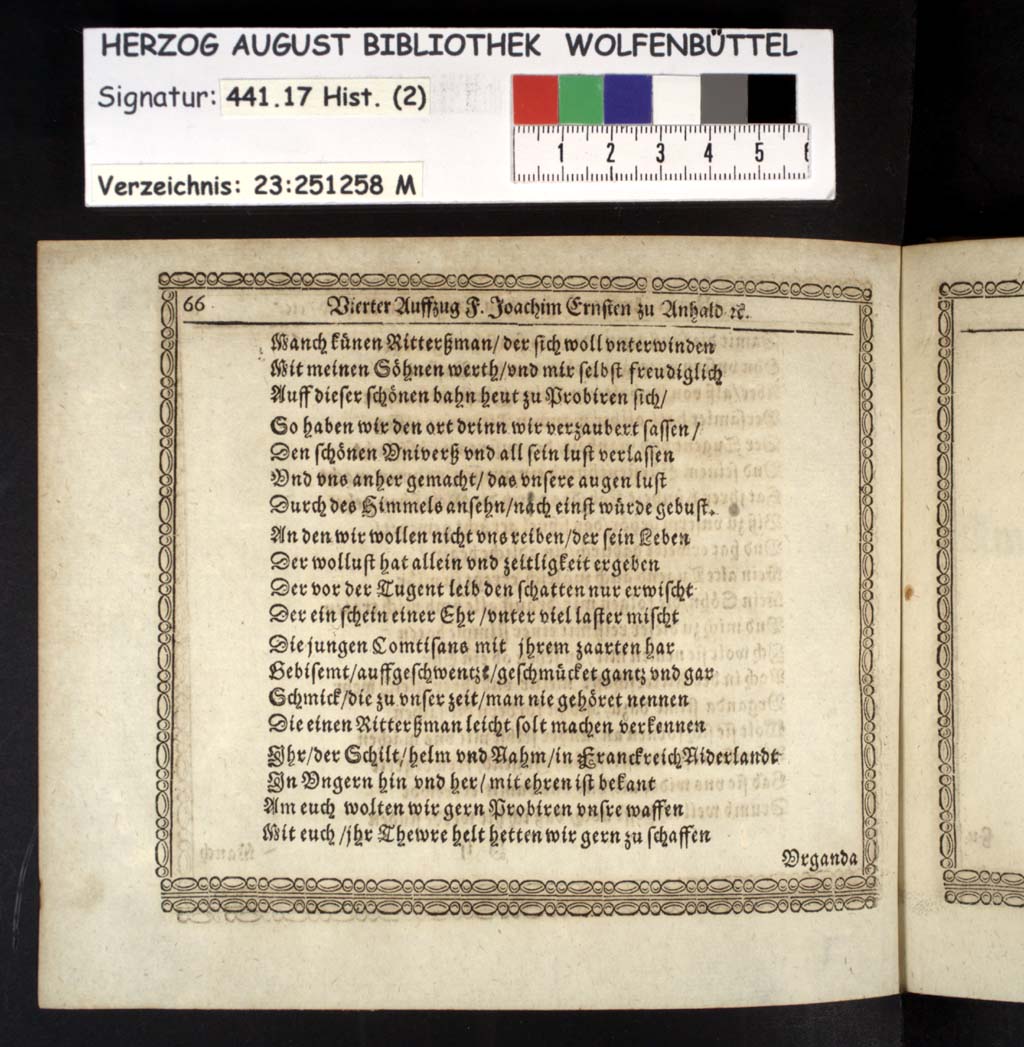 HERZOG AUGUST BIBLIOTHEK WOLFENBÜTTEL
Signatur: 441.17 Hist. (2)
1 2 3 4 5 6
Verzeichnis: 23:251258 M
66 Vierter Auffzug F. Joachim Ernsten zu Anhald ꝛc.
Manch künen Ritterßman/ der sich woll vnterwinden
Mit meinen Söhnen werth/vnd mir selbst freudiglich
Auff dieser schönen bahn heut zu Probiren sich/
So haben wir den ort drinn wir verzaubert sassen/
Den schönen Vniverß vnd all sein lust verlassen
Vnd vns anher gemacht/ das vnsere augen lust
Durch des Himmels ansehn/nach einst würde gebust.
An den wir wollen nicht vns reiben/der sein Leben
Der wollust hat allein vnd zeitligkeit ergeben
Der vor der Tugent leib den schatten nur erwischt
Der ein schein einer Ehr /vnter viel laster mischt
Die jungen Comtisans mit jhrem zaarten har
Bebisemt/auffgeschwentzt/geschmücket gantz vnd gar
Schmick/die zu vnser zeit/man nie gehöret nennen
Die einen Ritterßman leicht solt machen verkennen
Ihr/der Schilt/helm vnd Nahm/in Franckreich Niderlandt
In Vngern hin vnd her/ mit ehren ist bekant
Am euch wolten wir gern Probiren vnsre waffen
Mit euch /jhr Thewre helt hetten wir gern zu schaffen
Vrganda